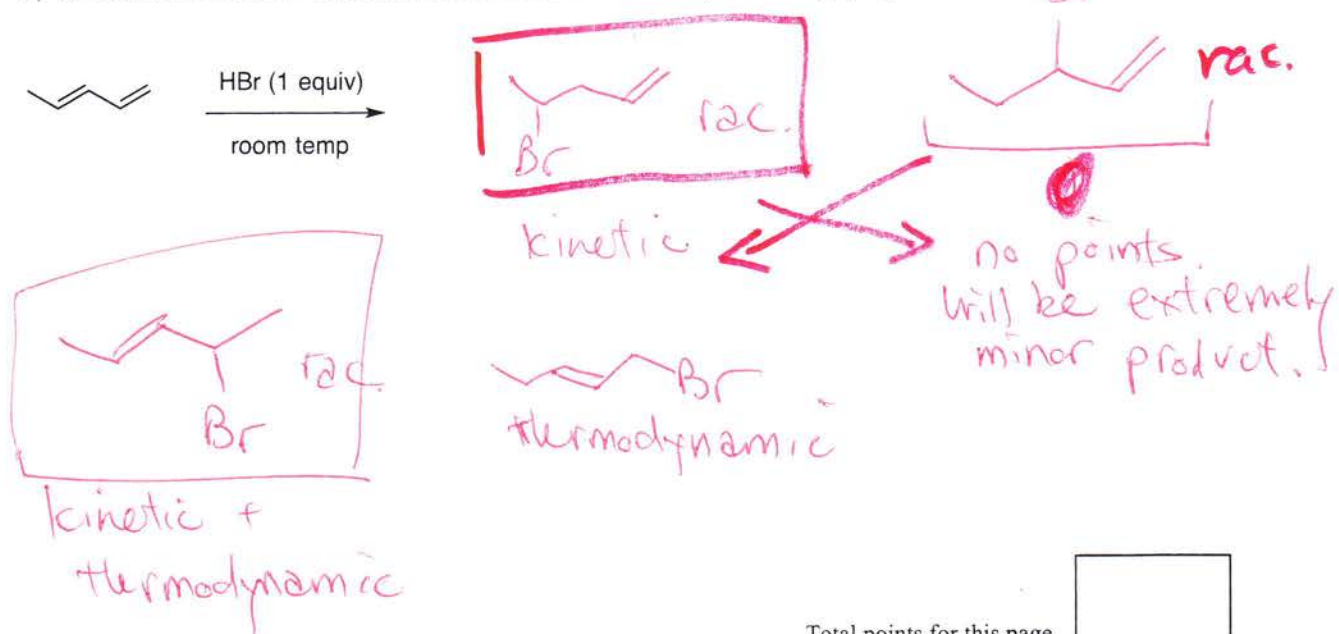 HBr (1 equiv)
room temp
Br
rac.
rac.
kinetic
no points.
will be extremely
minor product.
rac.
Br
Br
thermodynamic
kinetic +
thermodynamic
Total points for this page